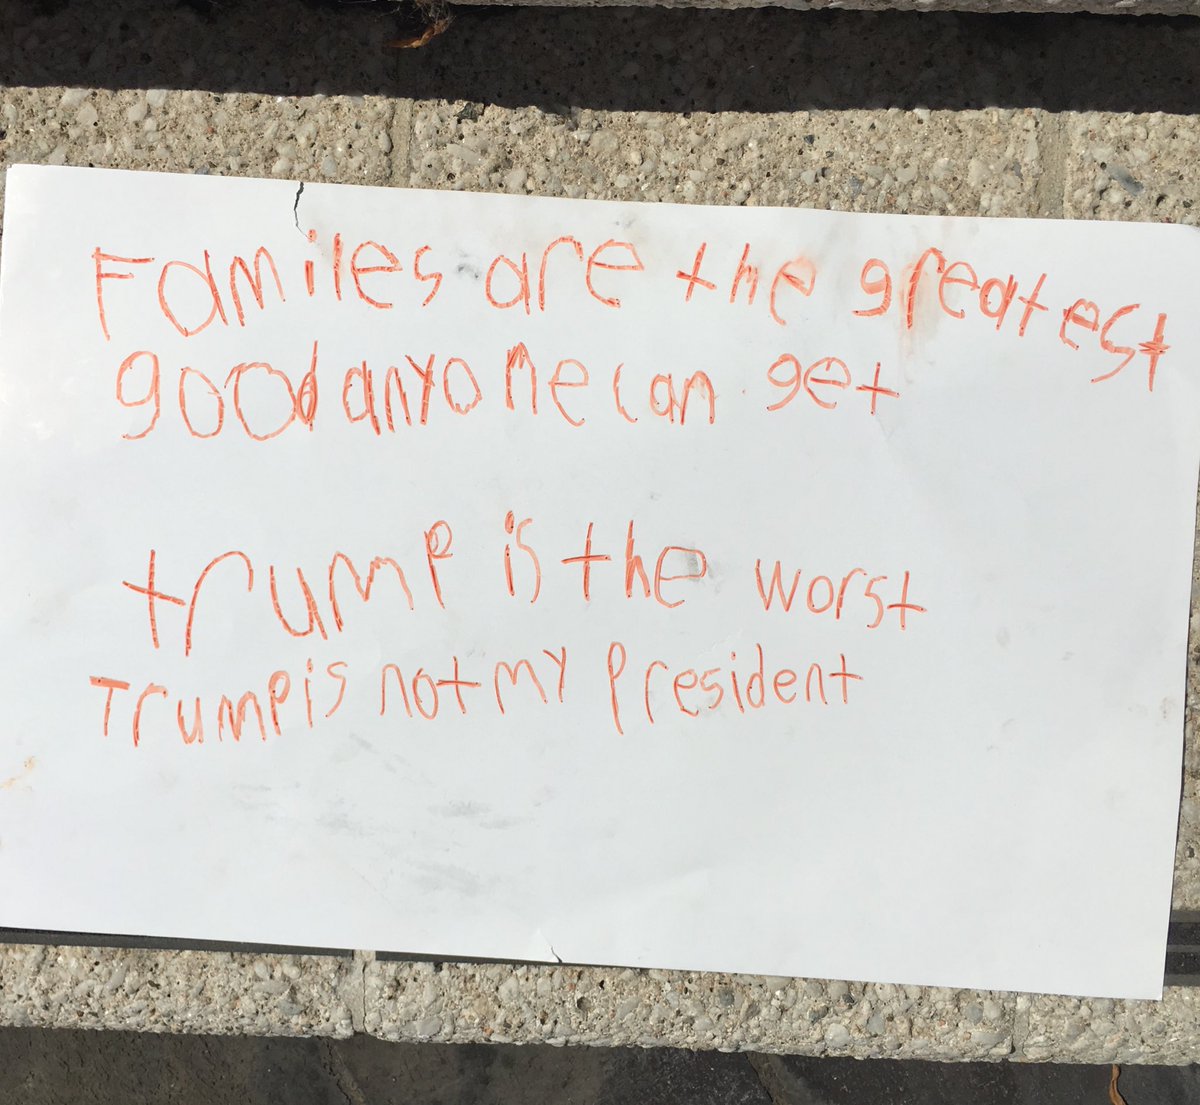 Familes are the greatest
good anyone can get
trump is the worst
Trump is not my president